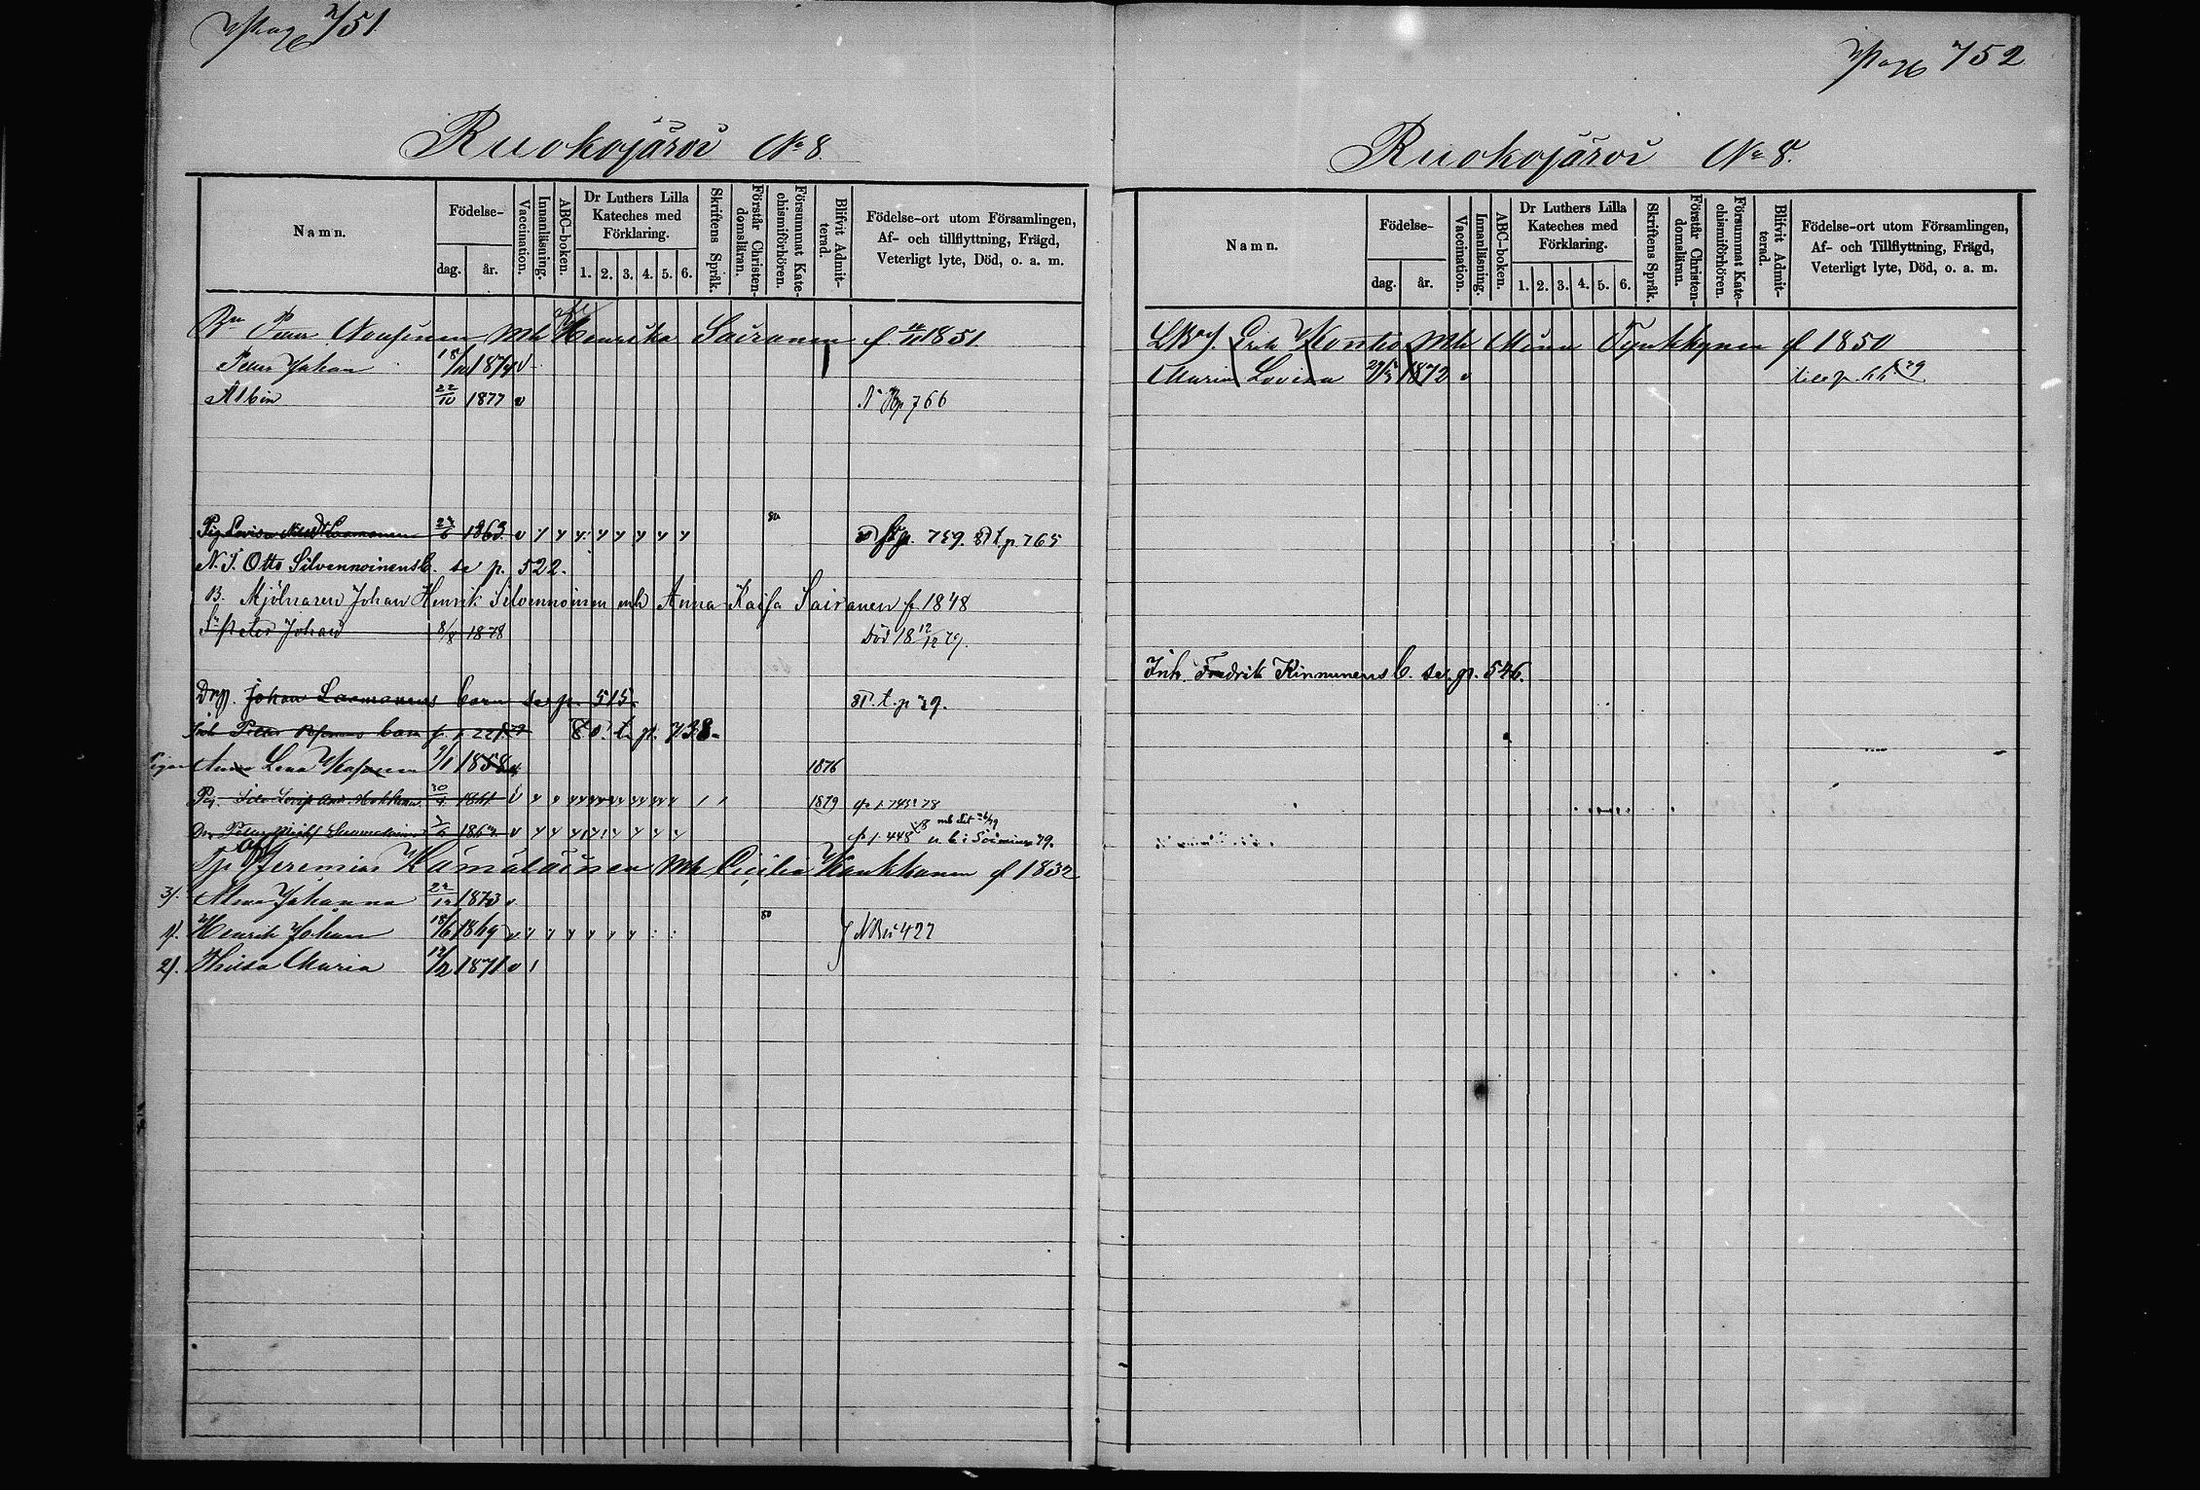 Pag 751
Ruokojärvi No 8
Namn.
Födelse-
dag.
år.
Vaccination.
Innanläsning.
ABC-boken.
Dr Luthers Lilla
Kateches med
Förklaring.
1. 2. 3. 4. 5. 6.
Skriftens Språk.
Förstår Christen-
domsläran.
Försummat Kate-
chismiförhören.
Blifvit Admit-
terad.
Födelse-ort utom Församlingen,
Af- och tillflyttning, Frägd,
Veterligt lyte, Död, o. a. m.
Peter Nousinen mh Henrika Sairanen f 1851
Peter Johan 18/11 1874 v
Albin 22/10 1877 v p 766
Lovisa Laamanen 1863 v 80 759. t.p. 765
N.T. Otto Silvennoinens b. se p. 522.
B. Mjölnaren Johan Henrik Silvennoinen mh Anna Kaisa Sairanen f. 1848
Peter Johan 8/8 1878 Död 18 12/12 79.
Johan Laamanens barn se p. 515. 80. t. p 29.
barn 80. t. p. 738.
Anna Lena 9/1 1858 1876
1861 1879 745 78
1863 448 79.
Jeremias Hämäläinen mh Cicilia Kaukkanen f 1832
3). Alma Johanna 22/12 1873 v
1). Henrik Johan 18/6 1869 80 427
2). Hilda Maria 12/2 1871 v 1
Pag 752
Ruokojärvi No 8.
Namn.
Födelse-
dag.
år.
Vaccination.
Innanläsning.
ABC-boken.
Dr Luthers Lilla
Kateches med
Förklaring.
1. 2. 3. 4. 5. 6.
Skriftens Språk.
Förstår Christen-
domsläran.
Försummat Kate-
chismiförhören.
Blifvit Admit-
terad.
Födelse-ort utom Församlingen,
Af- och Tillflyttning, Frägd,
Veterligt lyte, Död, o. a. m.
Erik Kontio mh Minna Tynkkynen f 1850
Maria Lovisa 29/5 1872 v till p. 79
Inh. Fredrik Kinnunens b. se. p. 546.